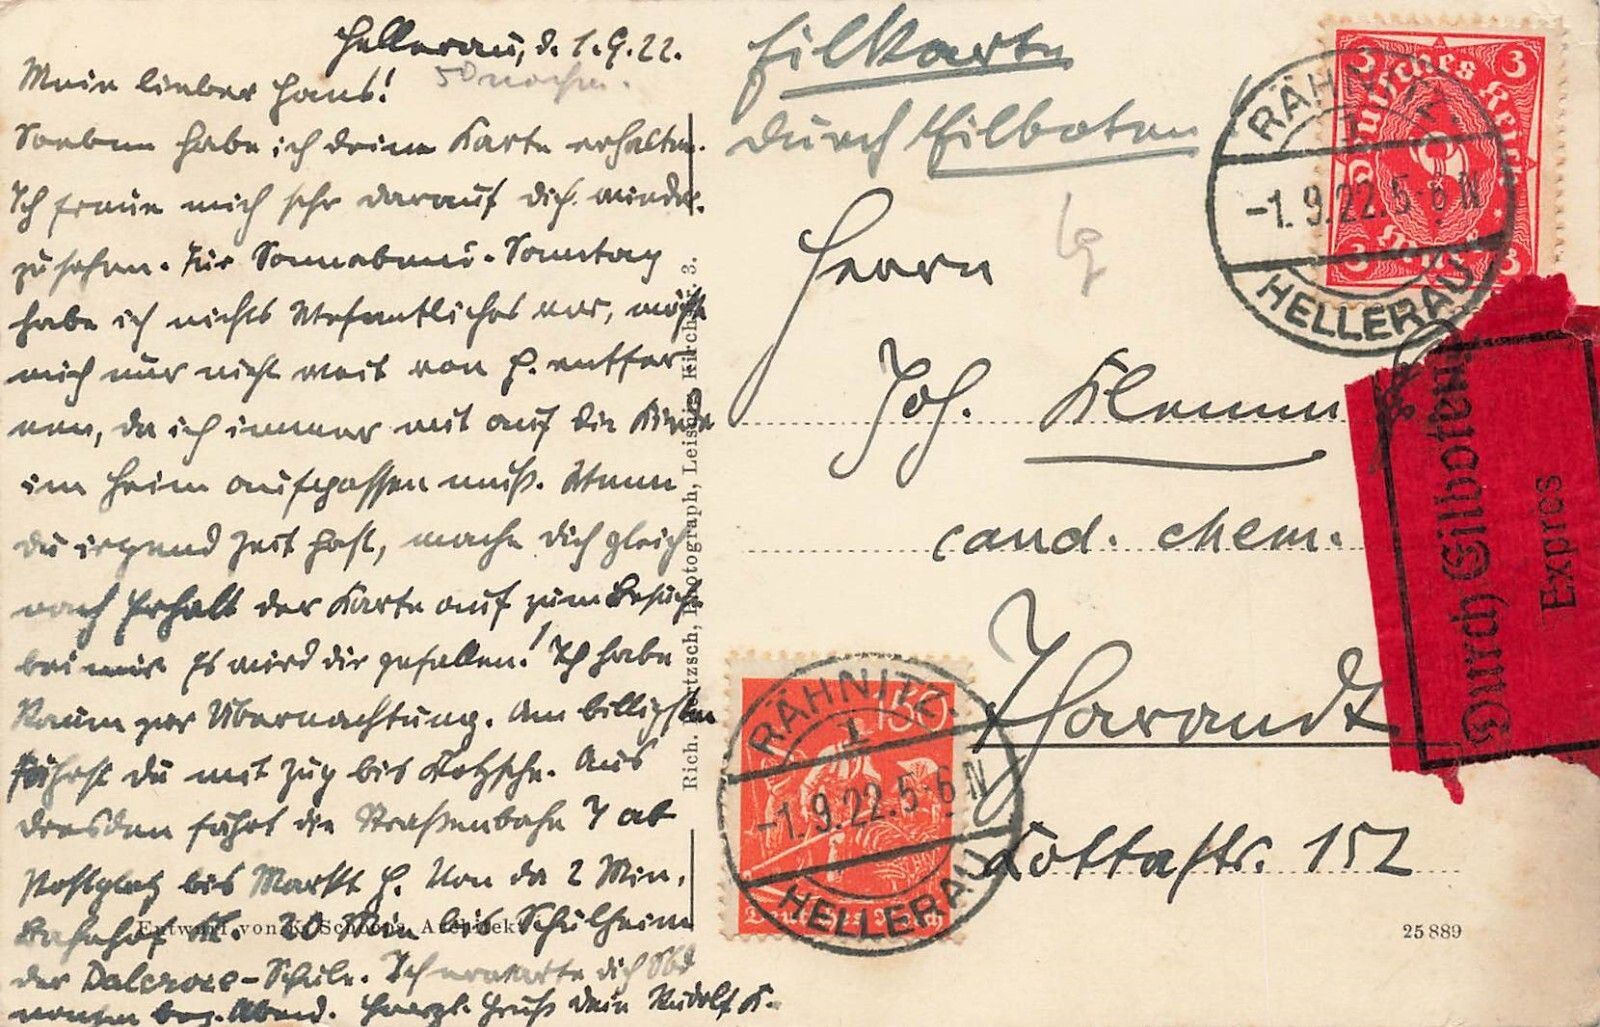 Hellerau, d. 1.9.22.
50 nachm.
Mein lieber Hans!
Soeben habe ich deine Karte erhalten.
Ich freue mich sehr darauf dich wieder-
zusehen. Für Sonnabend-Sonntag
habe ich nichts Wesentliches vor, möchte
mich nur nicht weit von H. entfer-
nen, da ich immer mit auf die Kinder
im Heim aufpassen muß. Wenn
du irgend Zeit hast, mache dich gleich
nach Erhalt der Karte auf zum Besuch
bei mir. Es wird dir gefallen! Ich habe
Raum zur Übernachtung. Am billigsten
fährst du mit Zug bis Klotzsche. Aus
Dresden fährt die Straßenbahn 7 ab
Postplatz bis Markt H. Von da 2 Min,
Bahnhof Kl. 20 Min bis Schulheim
der Dalcroze-Schule. Ich erwarte dich
bez. Abend. Herzl. Gruß dein Rudolf K.
Eilkarte
durch Eilboten
Herrn
Joh. Klemm
cand. chem.
Tharandt
Cottastr. 152
RÄHNITZ
-1.9.22.5-6 N
HELLERAU
Deutsches Reich
3
3
3
3
Durch Eilboten
Expres
RÄHNITZ
1
-1.9.22.5-6 N
HELLERAU
150
Deutsches Reich
Entwurf von Architekt
25889